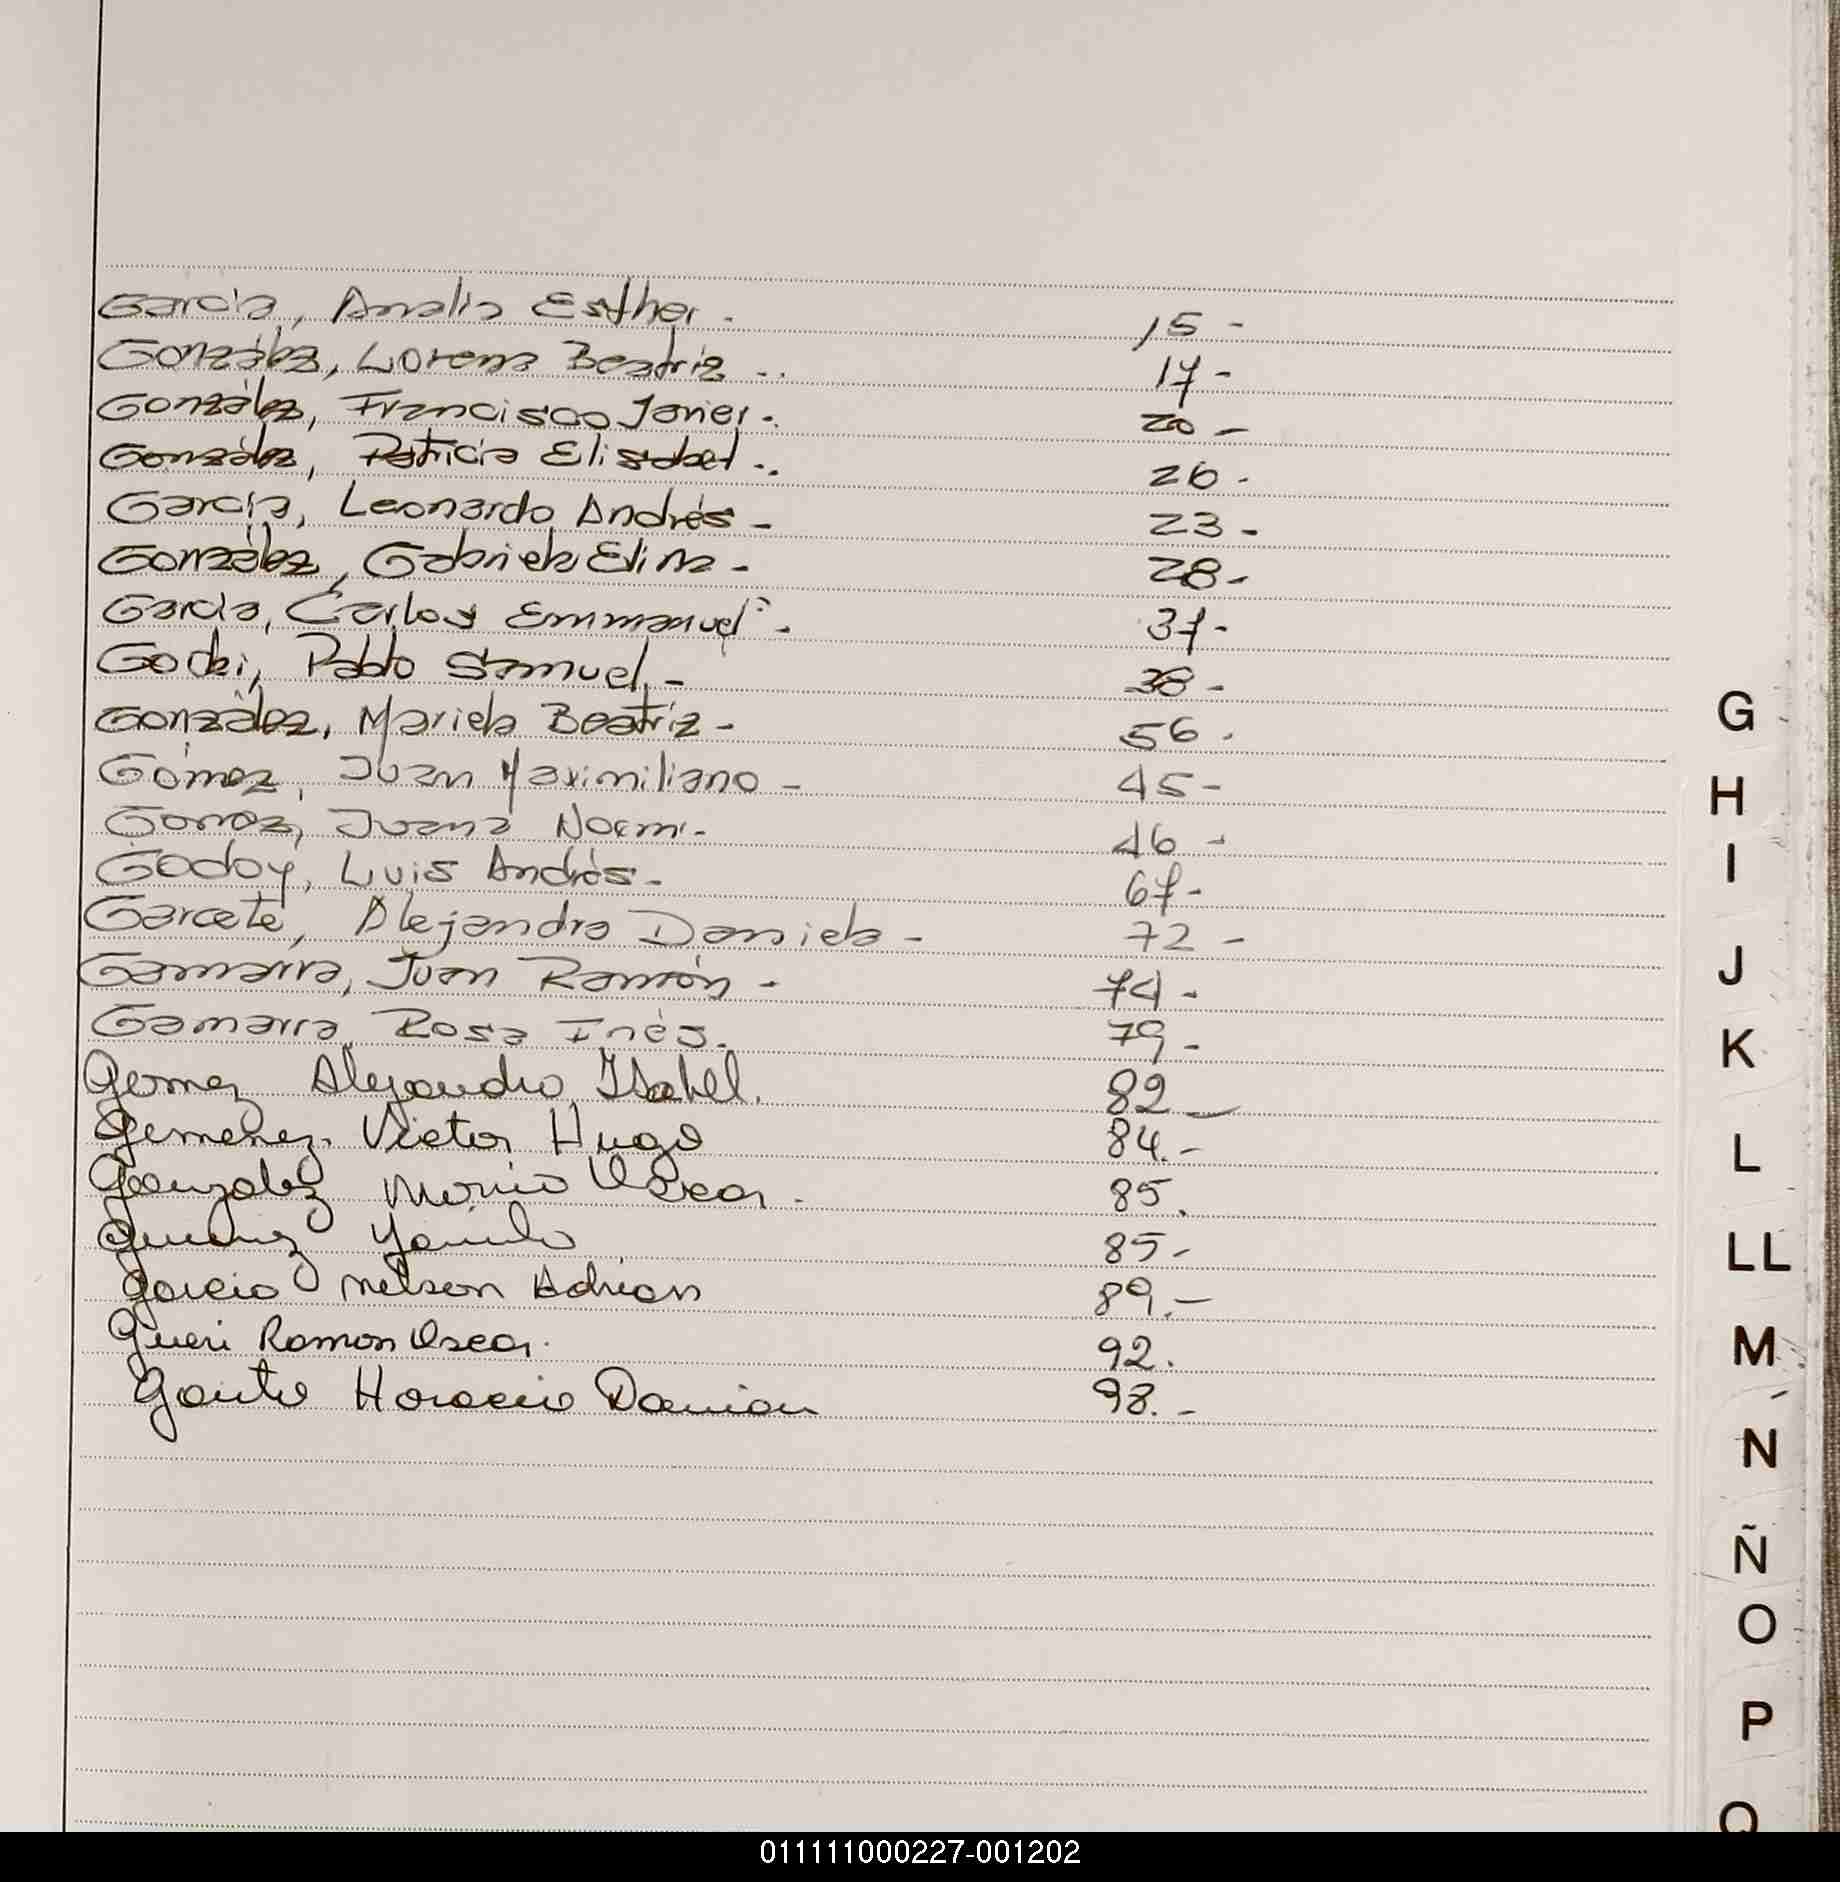 García, Analia Esther. 15-
González, Lorena Beatriz .. 17-
González, Francisco Javier. 20-
González, Patricia Elisabet.. 26.
García, Leonardo Andrés- 23-
González, Gabriela Elina- 28-
García, Carlos Emmanuel. 37-
Pablo Samuel.- 38-
González, Mariela Beatriz- 56.
Gómez, Juan Maximiliano- 45-
Gomez, Juana Noemi.- 46-
Godoy, Luis Andrés- 67-
Garcete, Alejandra Daniela- 72-
Gamarra, Juan Ramón- 74-
Gamarra, Rosa Inés. 79-
Gomez Alejandro Isabel. 82-
Gimenez. Victor Hugo 84.-
Gonzalez Mario Oscar. 85.
Yamila 85-
Garcia Nelson Adrian 89.-
Gueri Ramon Oscar. 92.
Horacio Damian 98.-
G
H
I
J
K
L
LL
M
N
Ñ
O
P
Q
011111000227-001202